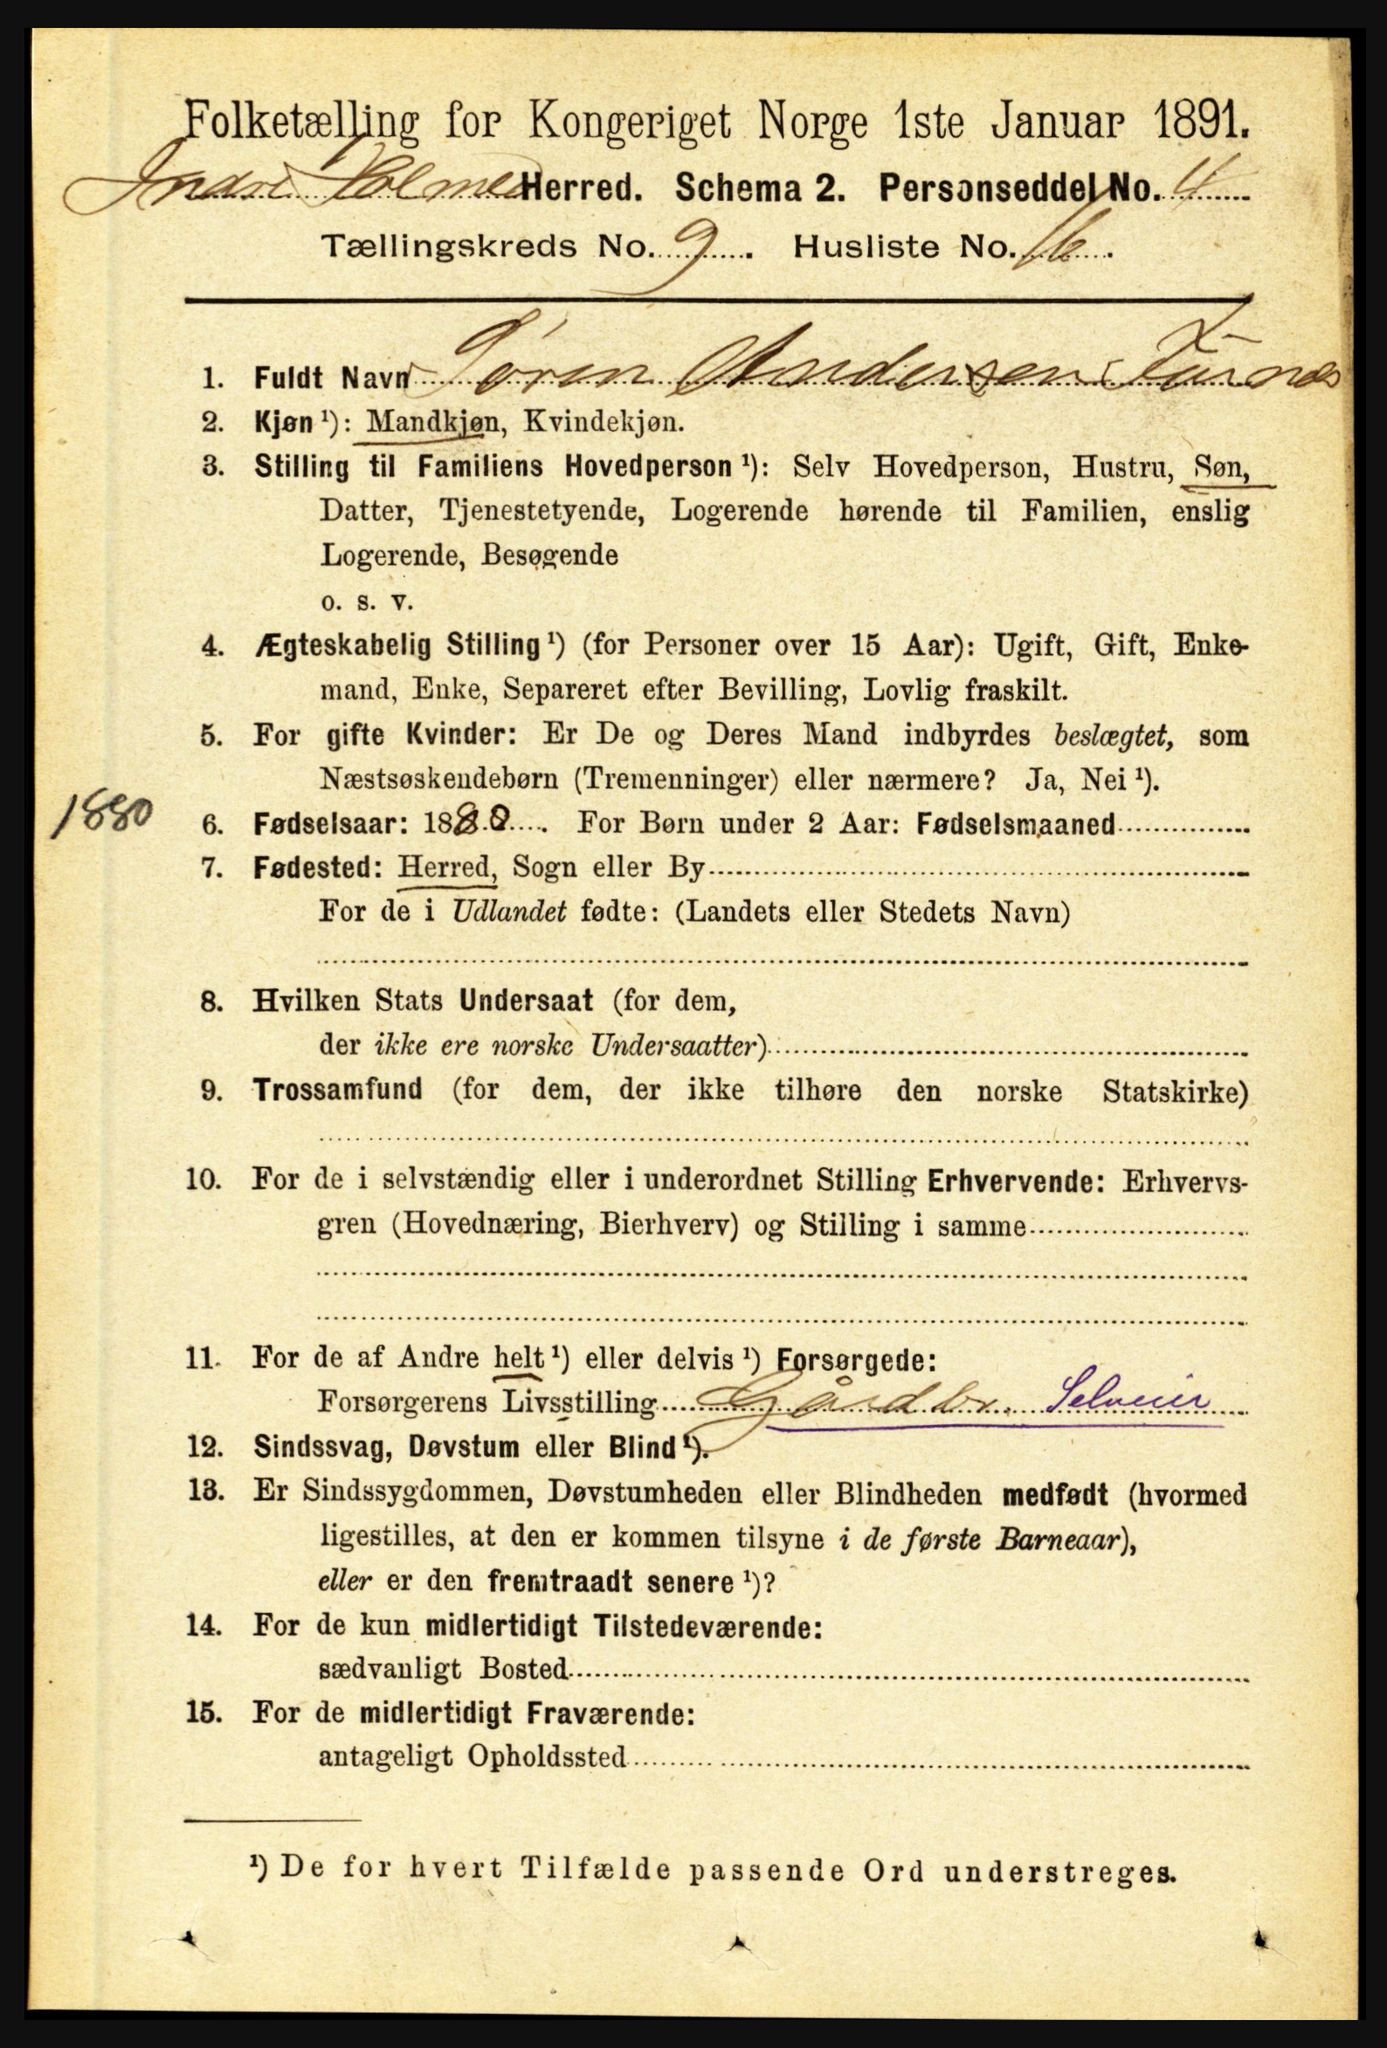 Folketælling for Kongeriget Norge 1ste Januar 1891.
Indre Holmedal Herred. Schema 2. Personseddel No. 4
Tællingskreds No. 9. Husliste No. 16.
1. Fuldt Navn Søren Andersen Furnes
2. Kjøn ¹): Mandkjøn, Kvindekjøn.
3. Stilling til Familiens Hovedperson ¹): Selv Hovedperson, Hustru, Søn,
Datter, Tjenestetyende, Logerende hørende til Familien, enslig
Logerende, Besøgende
o. s. v.
4. Ægteskabelig Stilling ¹) (for Personer over 15 Aar): Ugift, Gift, Enke-
mand, Enke, Separeret efter Bevilling, Lovlig fraskilt.
5. For gifte Kvinder: Er De og Deres Mand indbyrdes beslægtet, som
Næstsøskendebørn (Tremenninger) eller nærmere? Ja, Nei ¹).
1880
6. Fødselsaar: 1880. For Børn under 2 Aar: Fødselsmaaned
7. Fødested: Herred, Sogn eller By
For de i Udlandet fødte: (Landets eller Stedets Navn)
8. Hvilken Stats Undersaat (for dem,
der ikke ere norske Undersaatter)
9. Trossamfund (for dem, der ikke tilhøre den norske Statskirke)
10. For de i selvstændig eller i underordnet Stilling Erhvervende: Erhvervs-
gren (Hovednæring, Bierhverv) og Stilling i samme
11. For de af Andre helt ¹) eller delvis ¹) Forsørgede:
Forsørgerens Livsstilling Gårdbr. Selveier
12. Sindssvag, Døvstum eller Blind ¹).
13. Er Sindssygdommen, Døvstumheden eller Blindheden medfødt (hvormed
ligestilles, at den er kommen tilsyne i de første Barneaar),
eller er den fremtraadt senere ¹)?
14. For de kun midlertidigt Tilstedeværende:
sædvanligt Bosted
15. For de midlertidigt Fraværende:
antageligt Opholdssted
¹) De for hvert Tilfælde passende Ord understreges.